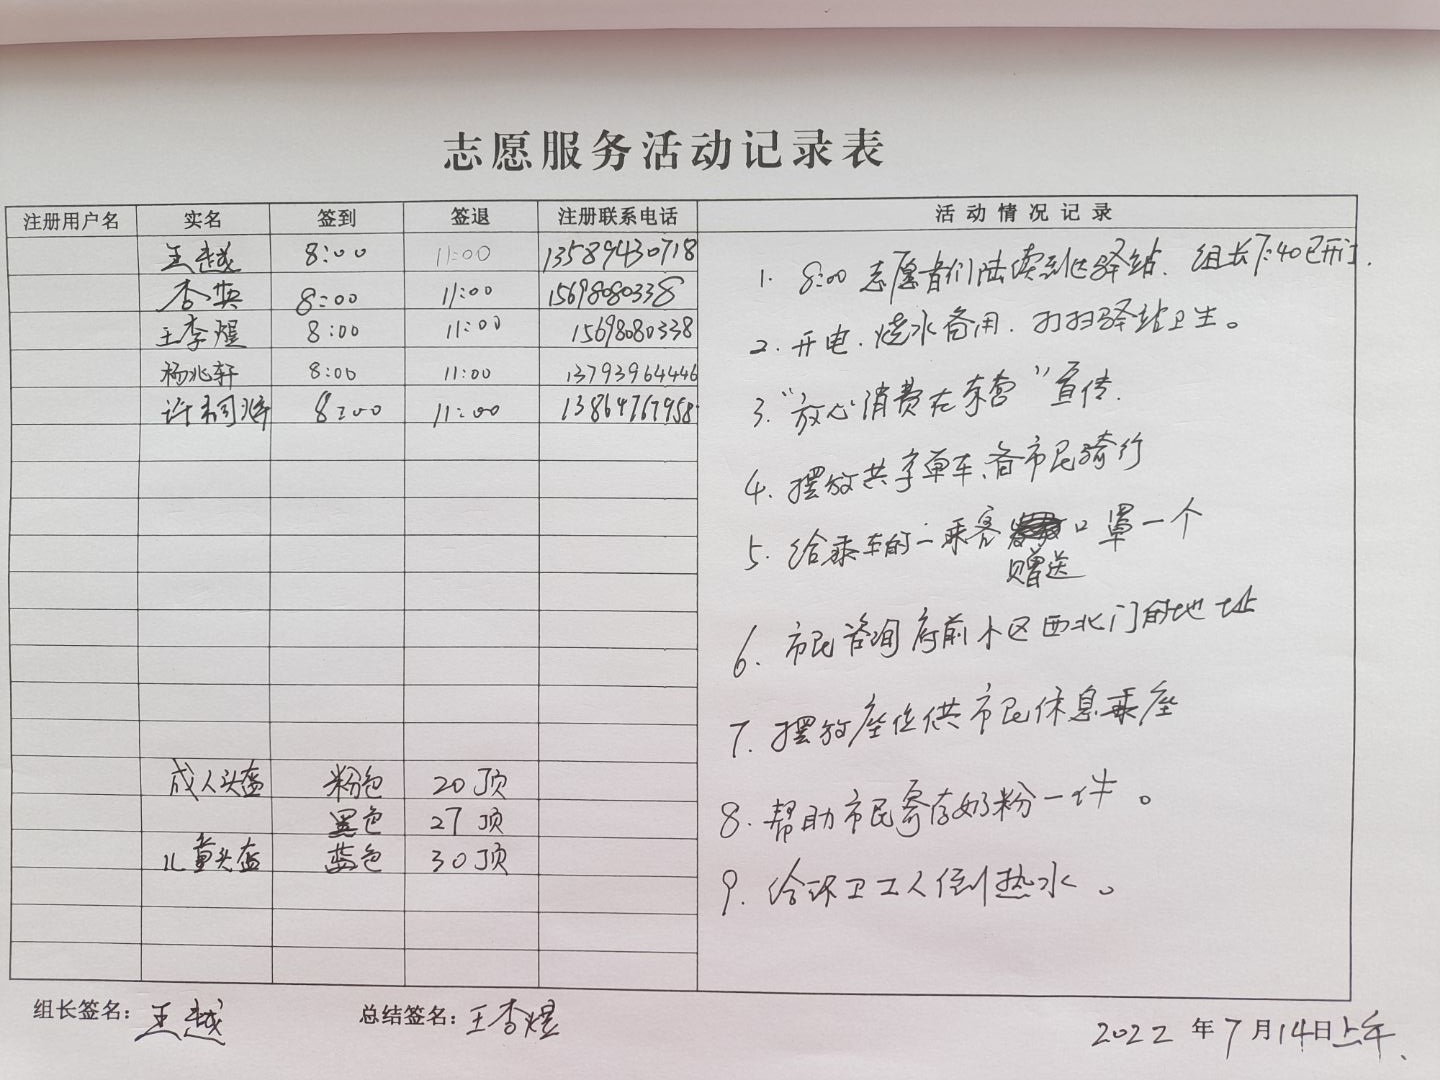 志愿服务活动记录表
注册用户名 实名 签到 签退 注册联系电话 活动情况记录
王越 8:00 11:00 13589430718
李英 8:00 11:00 15698080338
王李煜 8:00 11:00 15698080338
杨兆轩 8:00 11:00 13793964446
许 8:00 11:00 13864767958
成人头盔 粉色 20顶
黑色 27顶
儿童头盔 蓝色 30顶
1. 8:00志愿者们陆续到达驿站. 组长7:40已开门.
2. 开电.烧水备用.打扫驿站卫生。
3. "放心消费在东营"宣传.
4. 摆放共享单车、备市民骑行
5. 给乘车的一乘客赠送口罩一个
6. 市民咨询府前小区西北门的地址
7. 摆放座位供市民休息乘座
8. 帮助市民寄存奶粉一件。
9. 给环卫工人倒热水。
组长签名：王越 总结签名：王李煜
2022年7月14日上午.